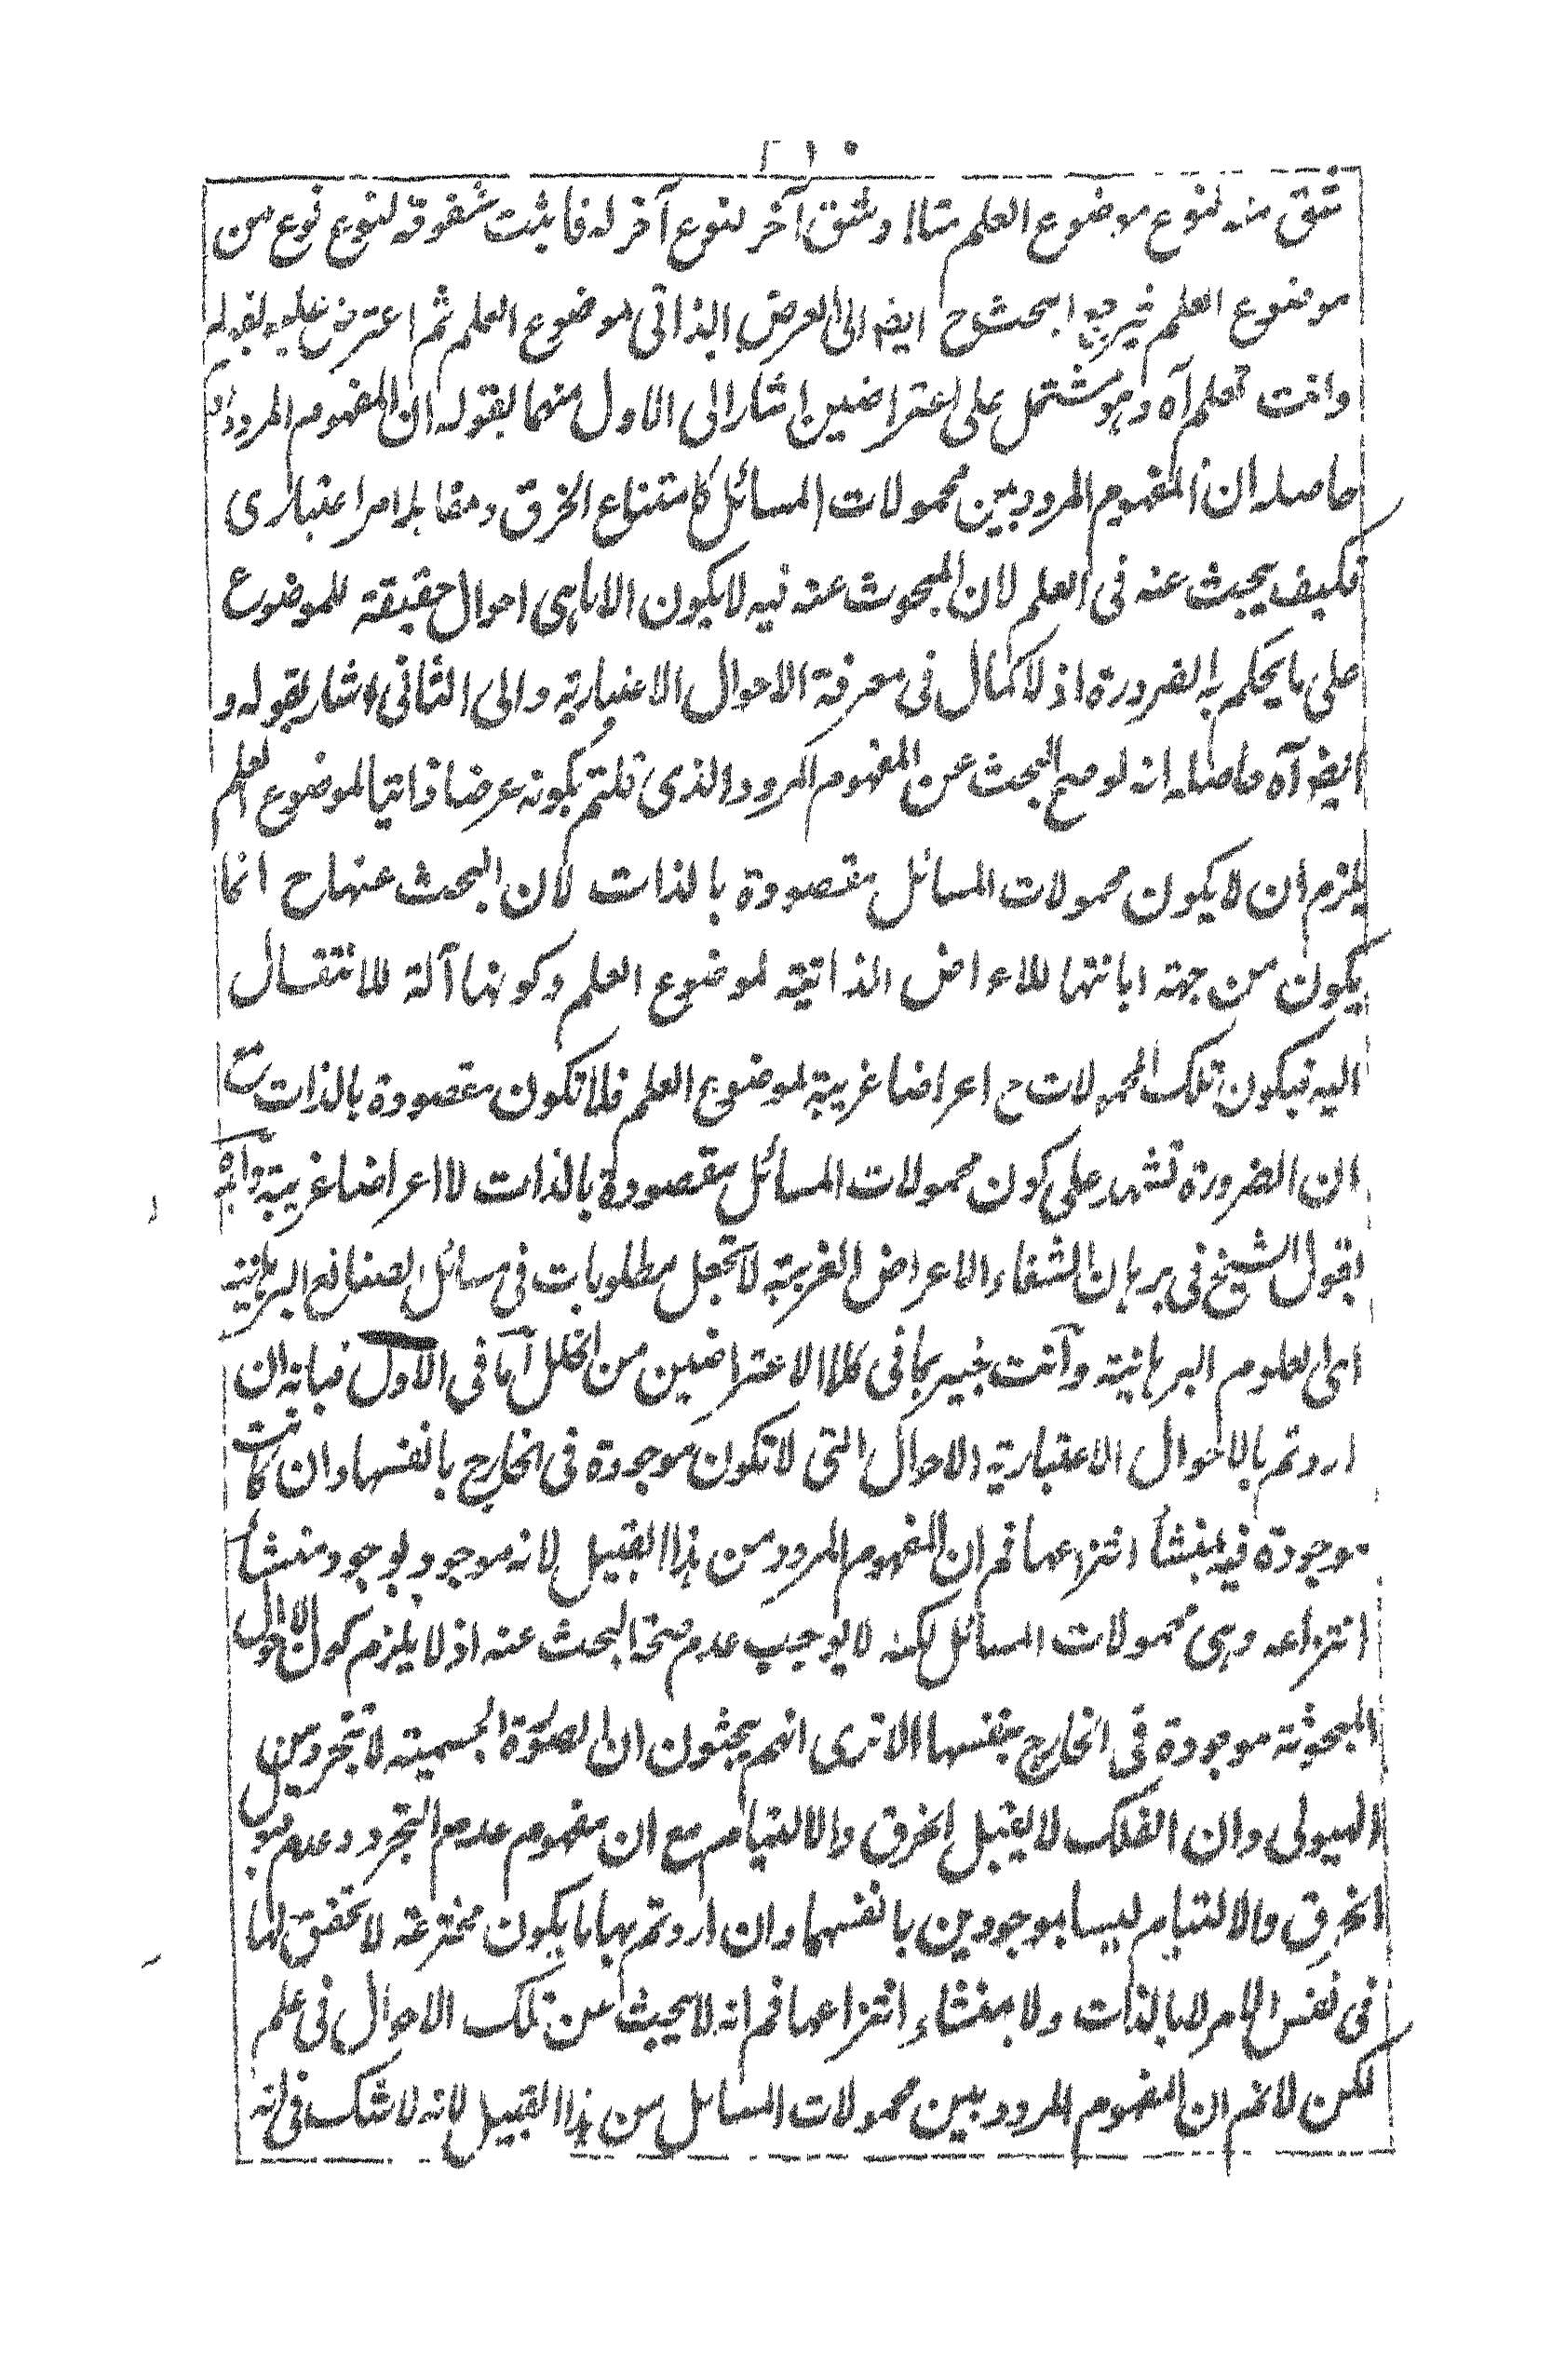 ٢١٠
شق منه لنوع موضوع العلم مثلا وشق آخر لنوع آخر له فاثبت شقوقه لنوع نوع من
موضوع العلم فيرجع البحث ح ايضا الى العرض الذاتي لموضوع العلم ثم اعترض عليه بقوله
وانت تعلم آه وهو مشتمل على اعتراضين اشار الى الاول منهما بقوله ان المفهوم المردد اه
حاصله ان المفهوم المردد بين محمولات المسائل كامتناع الخرق ومقابله امر اعتباري
فكيف يبحث عنه في العلم لان المبحوث عنه فيه لا يكون الا ما هي احوال حقيقة للموضوع
على ما يحكم به الضرورة اذ لا كمال في معرفة الاحوال الاعتبارية والى الثاني اشار بقوله و
ايضا آه حاصله انه لو صح البحث عن المفهوم المردد الذي قلتم بكونه عرضا ذاتيا لموضوع العلم
يلزم ان لا يكون محمولات المسائل مقصودة بالذات لان البحث عنها ح انما
يكون من جهة ابانتها للاعراض الذاتية لموضوع العلم وكونها آلة للانتقال
اليه فيكون تلك المحمولات ح اعراضا غريبة لموضوع العلم فلا تكون مقصودة بالذات مع
ان الضرورة تشهد على كون محمولات المسائل مقصودة بالذات لا اعراضا غريبة
بقول الشيخ في برهان الشفاء الاعراض الغريبة لا تجعل مطلوبات في مسائل الصنائع البرهانية
اى العلوم البرهانية وآنت خبير بما في كلا الاعتراضين من الخلل آما في الاول فبانه ان
اردتم بالاحوال الاعتبارية الاحوال التي لا تكون موجودة في الخارج بانفسها وان كانت
موجودة فيه بمنشأ انتزاعها فم ان المفهوم المردد من هذا القبيل لانه موجود بوجود منشأ
انتزاعه وهي محمولات المسائل لكنه لا يوجب عدم صحة البحث عنه اذ لا يلزم كون الاحوال
المبحوثة موجودة في الخارج بنفسها الا ترى انهم يبحثون ان الصورة الجسمية لا تتجرد من
الهيولى وان الفلك لا يقبل الخرق والالتيام مع ان مفهوم عدم التجرد وعدم قبول
الخرق والالتيام ليسا بموجودين بانفسهما وان اردتم بها ما يكون مخترعة لا تحقق لها
في نفس الامر لا بالذات ولا بمنشاء انتزاعها فم انه لا يبحث عن تلك الاحوال في علم
لكن لا نم ان المفهوم المردد بين محمولات المسائل من هذا القبيل لانه لا شك في انه